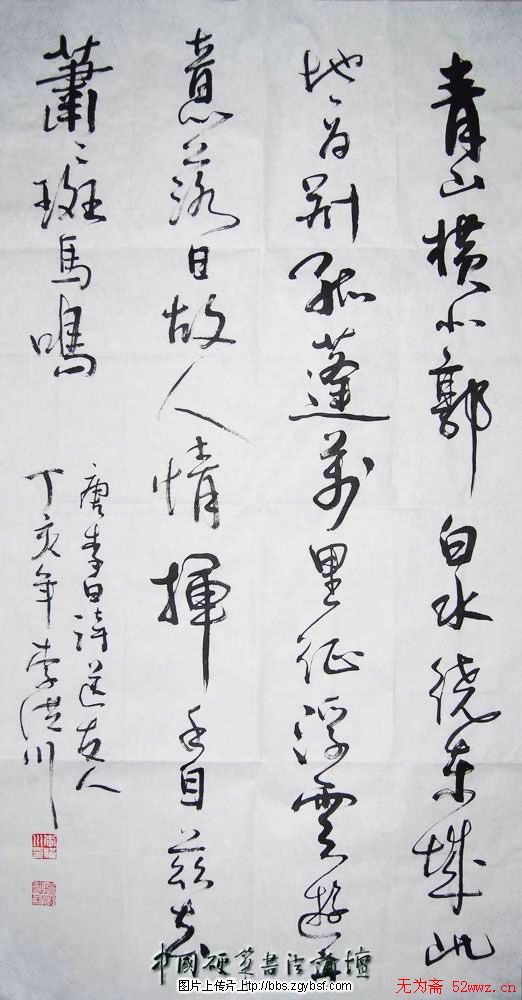 青山橫北郭白水繞東城此
地一為別孤蓬萬里征浮雲遊子
意落日故人情揮手自茲去
蕭〻斑馬鳴
唐李白詩送友人
丁亥年李洪川
中國硬筆書法論壇
图片上传于上http://bbs.zgybsf.com
无为斋 52wwz.cn